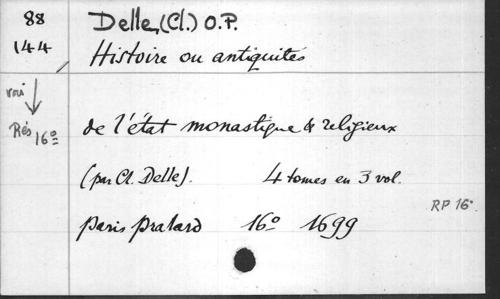 88
144
Delle, (Cl.) O.P.
Histoire ou antiquités
voir
Rés 16º
de l'état monastique & religieux
(par Cl. Delle). 4 tomes en 3 vol.
RP 16º
Paris Pralard 16º 1699